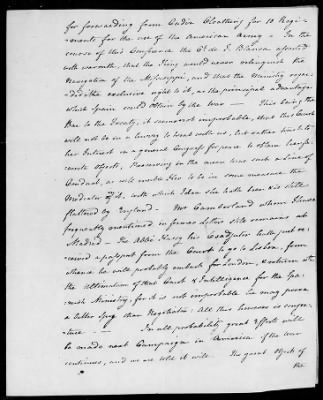 for forwarding from Cadiz Cloathing for 10 Regi-
-ments for the use of the American Army - In the
course of this Conference the Ct. de F. Blanca asserted
with warmth, that the King would never relinquish the
Navigation of the Mississippi, and that the Ministry regar-
-ded the exclusive right to it, as the principal advantage
which Spain could obtain by the War — This being the
Bar to the Treaty, it seems not improbable, that this Court
will not be in a hurry to treat with us, but rather trust to
her Interest in a general Congress for peace to obtain
Objects, Preserving in the mean time such a line of
Conduct, as will enable Her to be in some measure the
Mediatrix, with which Idea she hath been
flattered by England. Mr Cumberland whom I have
frequently mentioned in former Letters still remains at
Madrid - The Abbé Hussy his Coadjutor hath just re-
-ceived a passport from the Court to go to Lisbon, from
whence he will probably embark for London, & return with
the ultimatum of that Court & Intelligence for the Spa-
-nish Ministry, for it is not improbable he may prove
a better Spy than Negotiator: All this however is conjec-
-ture. — In all probability great efforts will
be made next Campaign in America if the War
continues, and we are told it will. The great Object of
the